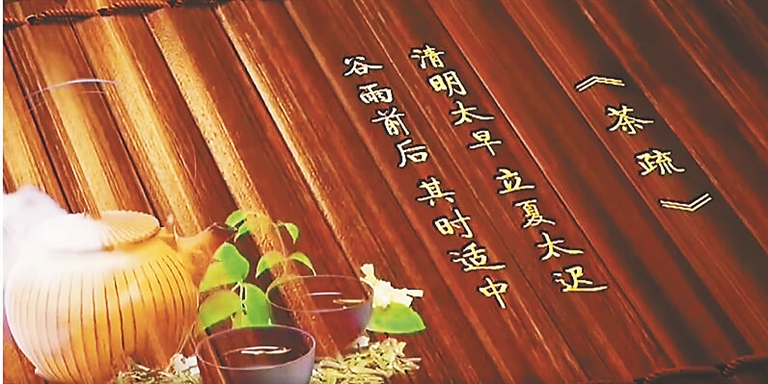 《茶疏》
清明太早 立夏太迟
谷雨前后 其时适中